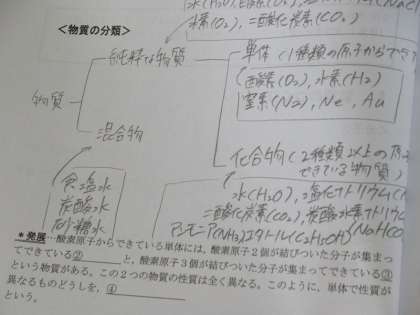 水素(O₂), 二酸化炭素(CO₂)
<物質の分類>
純粋な物質
単体(1種類の原子からでき
酸素(O₂), 水素(H₂)
窒素(N₂), Ne, Au
物質
混合物
化合物(2種類以上の原子
できている物質)
食塩水
炭酸水
砂糖水
水(H₂O), 塩化ナトリウム(
二酸化炭素(CO₂), 炭酸水素ナトリウム
アンモニア(NH₃) エタノール(C₂H₅OH) NaHCO
*発展…酸素原子からできている単体には、酸素原子2個が結びついた分子が集まっ
てできている② と、酸素原子3個が結びついた分子が集まってできている③
という物質がある。この2つの物質の性質は全く異なる。このように、単体で性質が
異なるものどうしを、④
という。